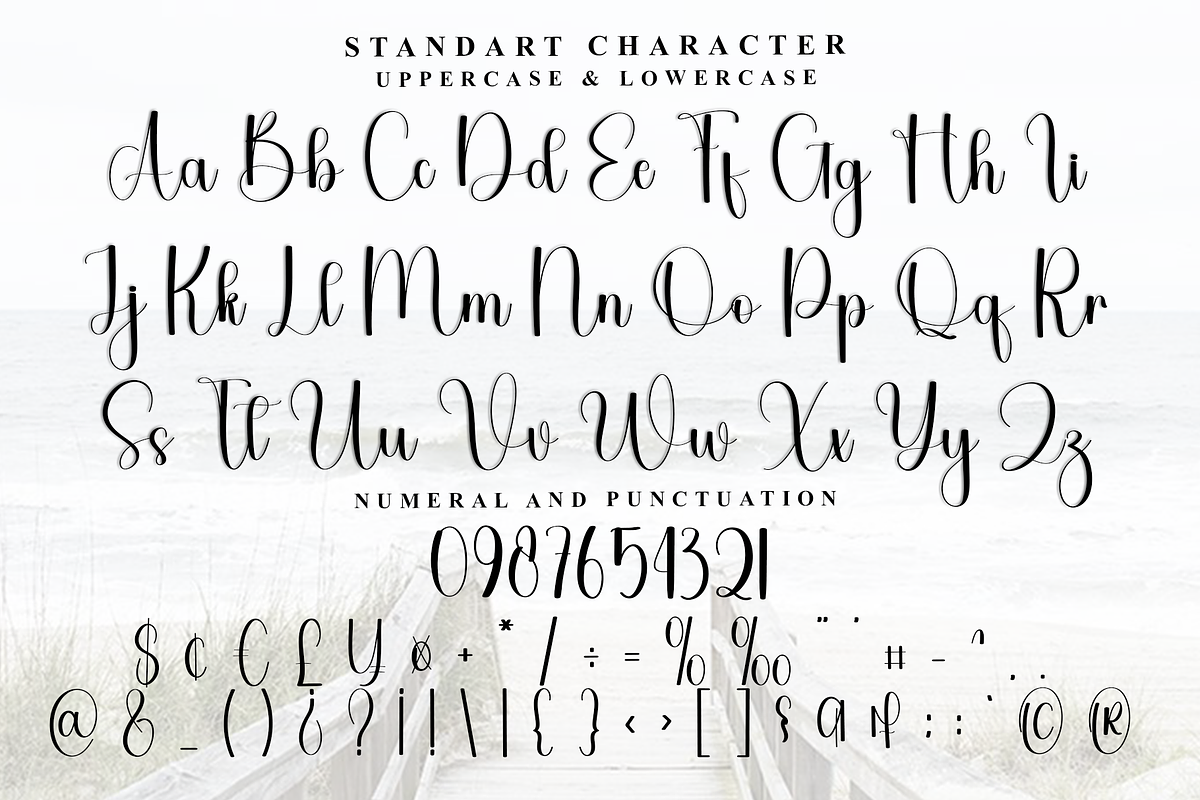 STANDART CHARACTER
UPPERCASE & LOWERCASE
Aa Bb Cc Dd Ee Ff Gg Hh Ii
Jj Kk Ll Mm Nn Oo Pp Qq Rr
Ss Tt Uu Vv Ww Xx Yy Zz
NUMERAL AND PUNCTUATION
0987654321
$ ¢ € £ ¥ ¤ + * / ÷ = % ‰ " ' # - ^ . .
@ & _ ( ) ¿ ? ¡ ! \ | { } ‹ › [ ] § ; : ` © ®